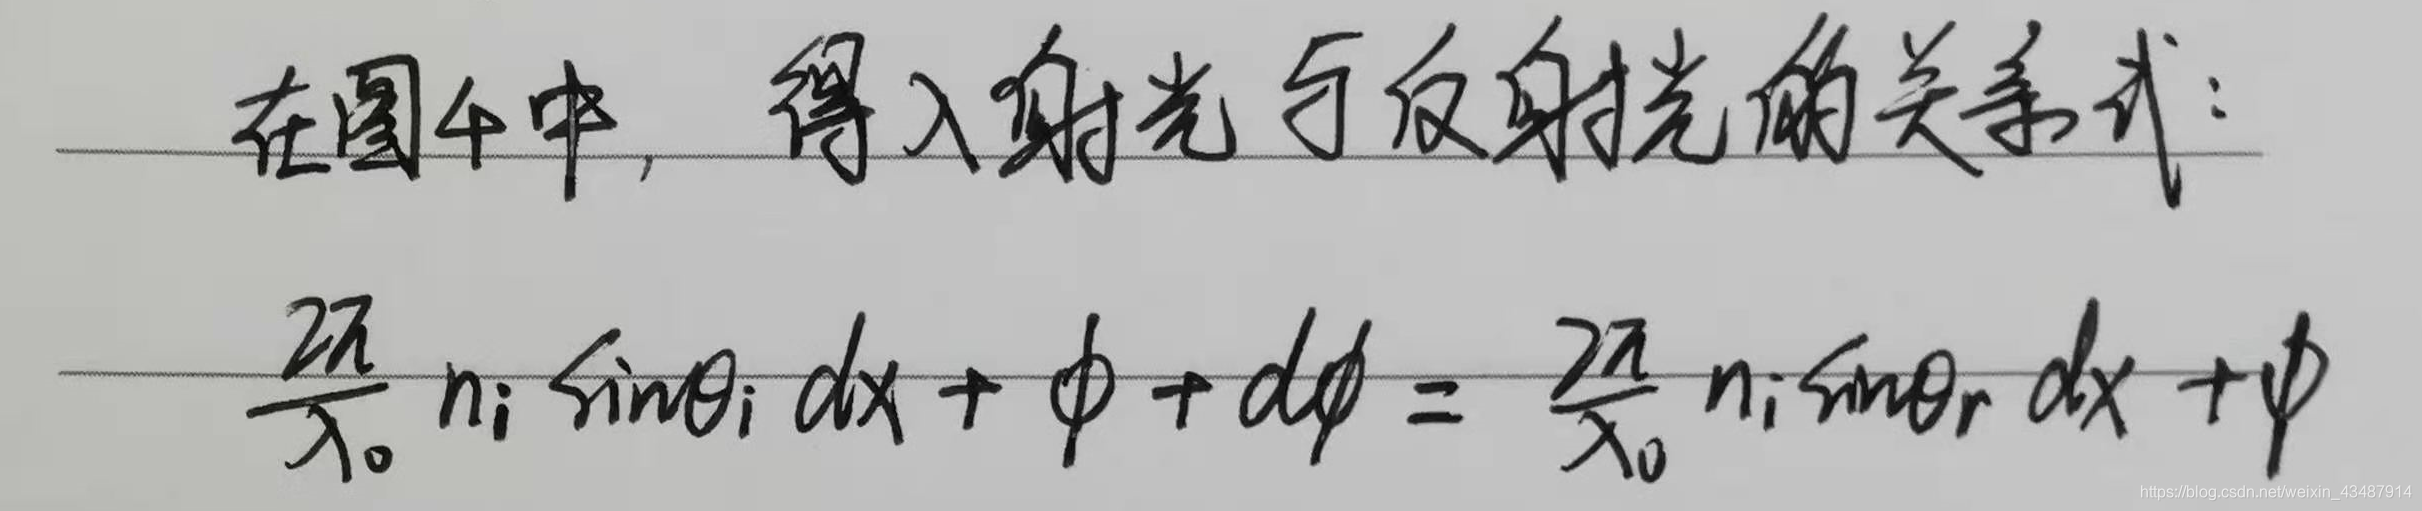 在图4中，得入射光与反射光的关系式：
2π/λ₀ nᵢ sinθᵢ dx + ϕ + dϕ = 2π/λ₀ nᵢ sinθᵣ dx + ϕ
https://blog.csdn.net/weixin_43487914